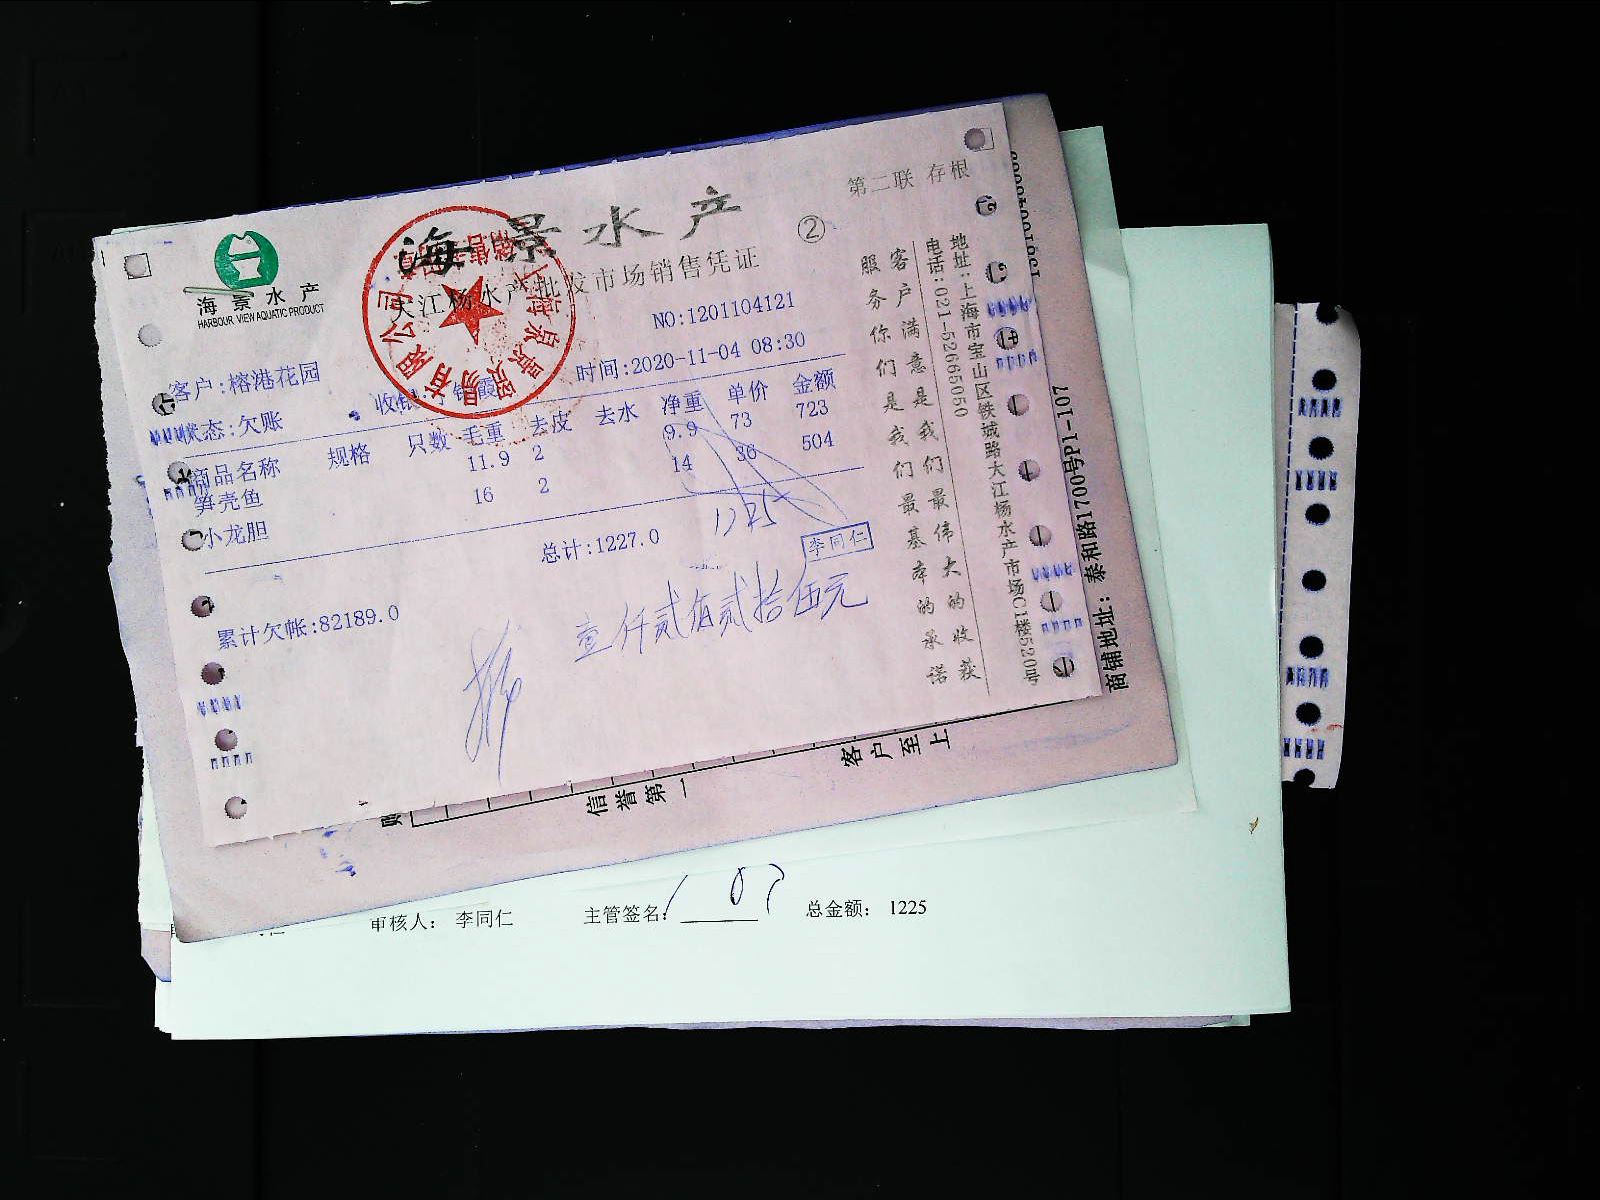 第二联 存根
海景水产
②
大江杨水产批发市场销售凭证
海景水产
HARBOUR VIEW AQUATIC PRODUCT
NO:1201104121
客户:榕港花园
时间:2020-11-04 08:30
状态:欠账
商品名称 规格 只数 毛重 去皮 去水 净重 单价 金额
笋壳鱼 11.9 2 9.9 73 723
小龙胆 16 2 14 36 504
总计:1227.0
1225
李同仁
累计欠帐:82189.0
壹仟贰佰贰拾伍元
客户满意是我们最伟大的收获
服务你们是我们最基本的承诺
地址:上海市宝山区铁城路大江杨水产市场C1楼520号
电话:021-52665050
商铺地址: 泰和路1700号P1-107
信誉第一
客户至上
审核人: 李同仁 主管签名: 总金额: 1225